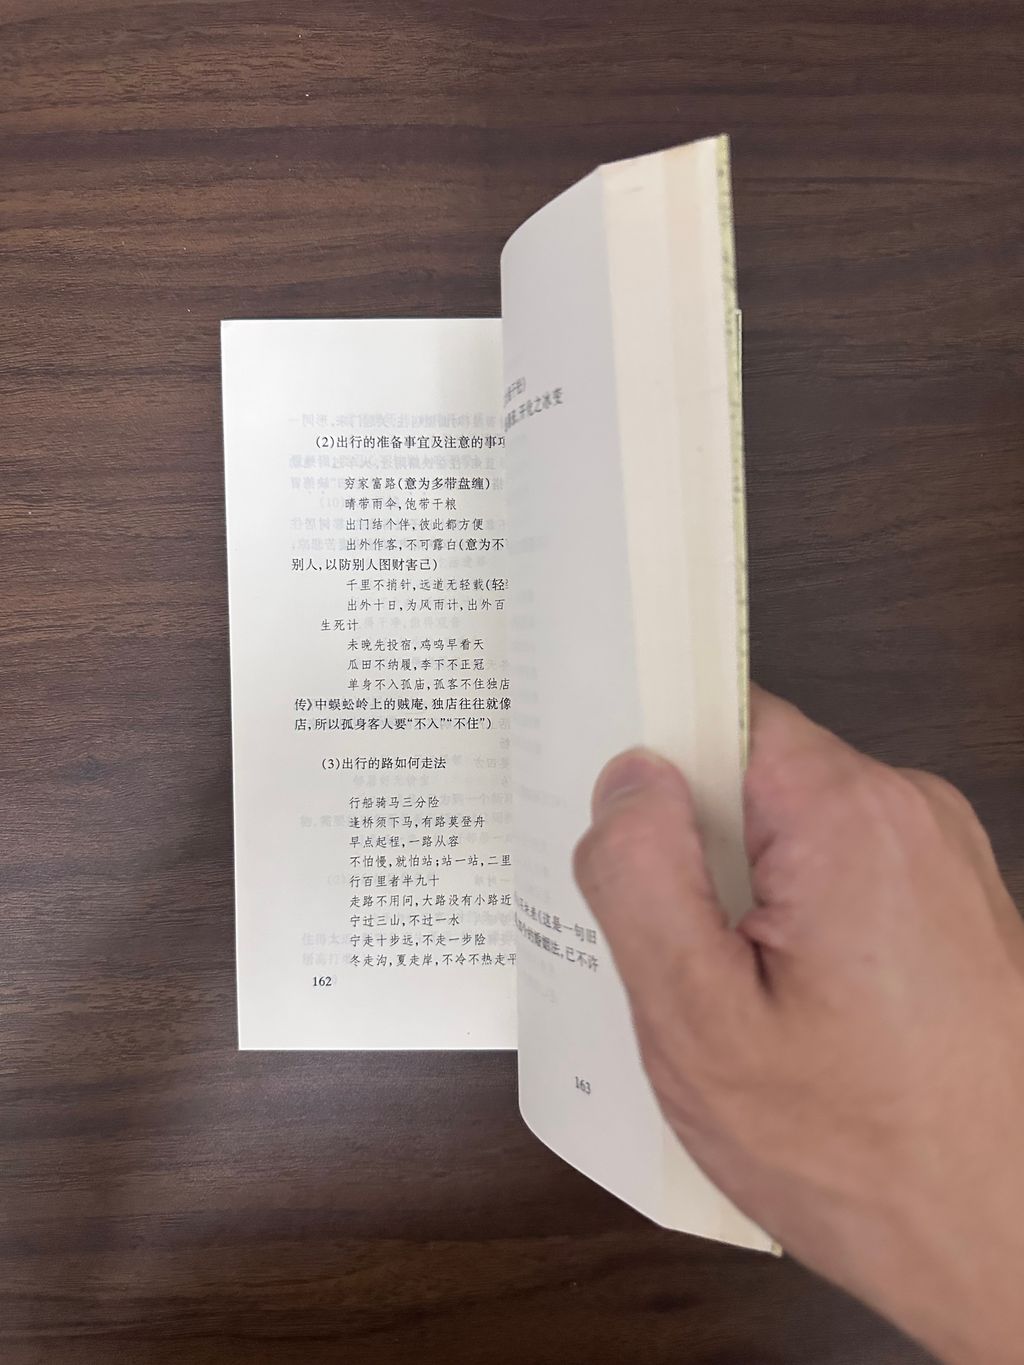 (2)出行的准备事宜及注意的事项
穷家富路(意为多带盘缠)
晴带雨伞,饱带干粮
出门结个伴,彼此都方便
出外作客,不可露白(意为不
别人,以防别人图财害己)
千里不捎针,远道无轻载(轻
出外十日,为风雨计,出外百
生死计
未晚先投宿,鸡鸣早看天
瓜田不纳履,李下不正冠
单身不入孤庙,孤客不住独店
传》中蜈蚣岭上的贼庵,独店往往就像
店,所以孤身客人要“不入”“不住”)
(3)出行的路如何走法
行船骑马三分险
逢桥须下马,有路莫登舟
早点起程,一路从容
不怕慢,就怕站;站一站,二里
行百里者半九十
走路不用问,大路没有小路近
宁过三山,不过一水
宁走十步远,不走一步险
冬走沟,夏走岸,不冷不热走平
162
开化之冰变
(这是一句旧
的婚姻法,已不许
163